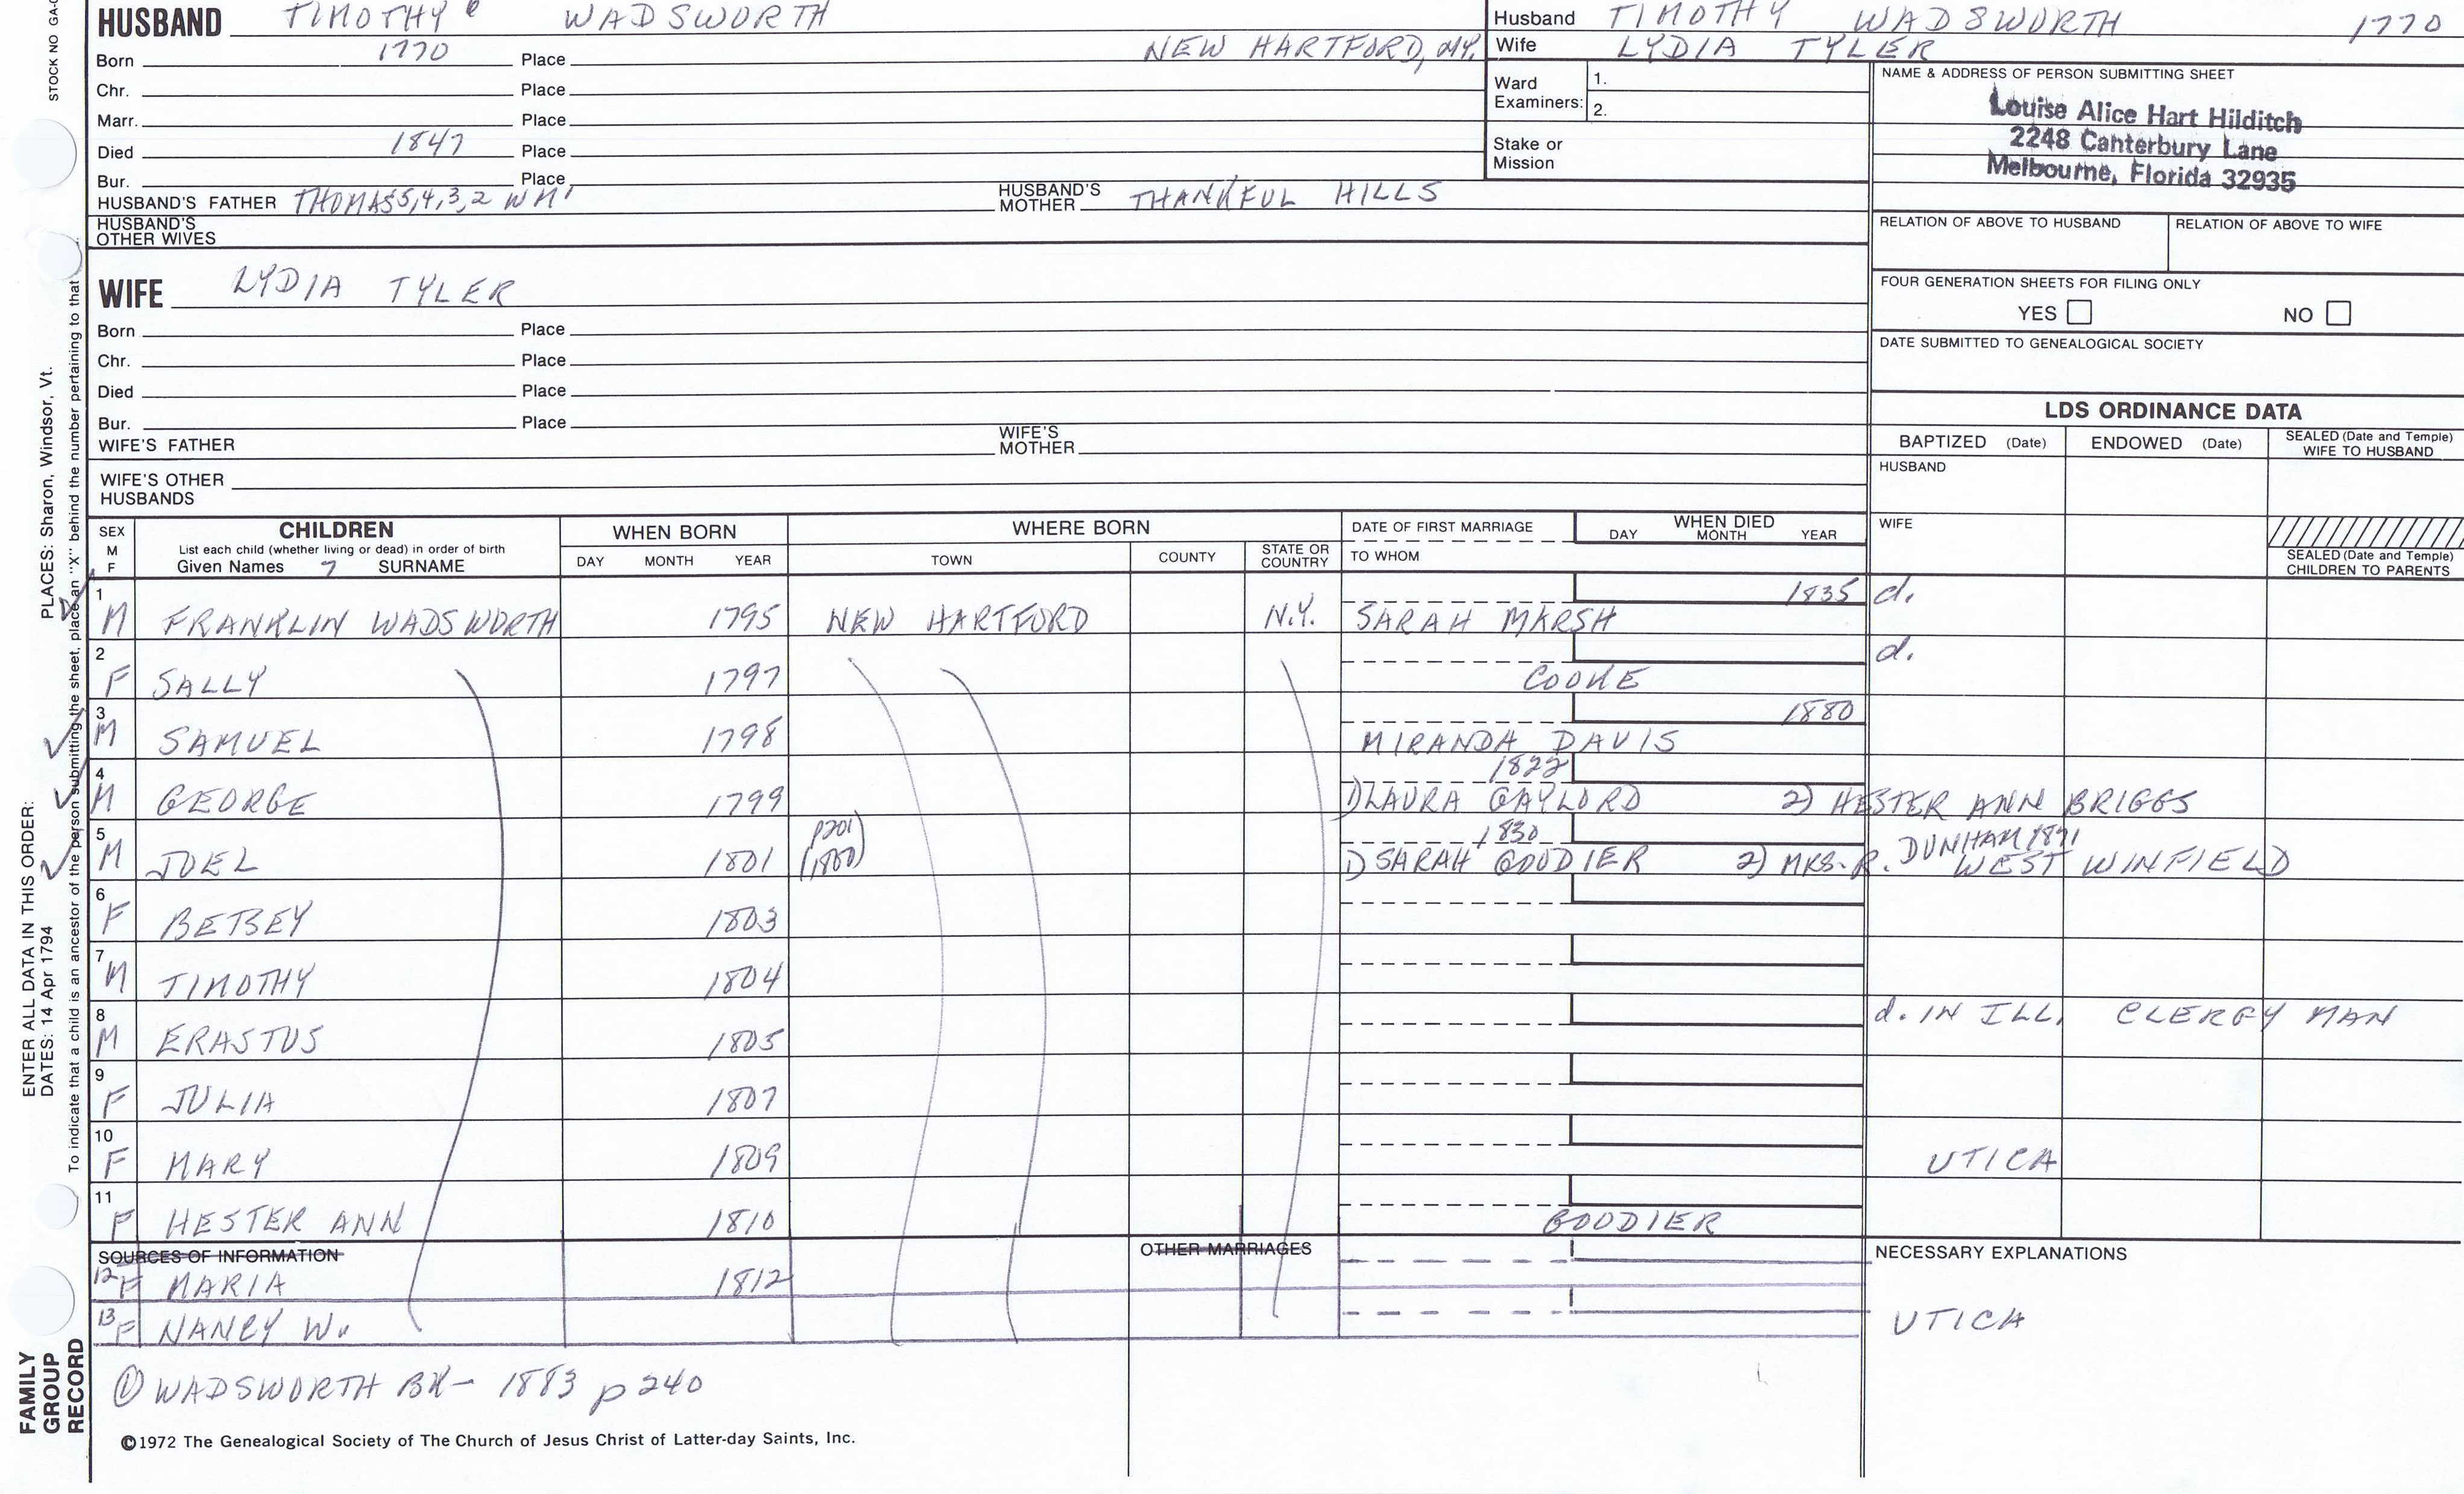 STOCK NO GA-
HUSBAND TIMOTHY 6 WADSWORTH
Born 1770 Place NEW HARTFORD, NY.
Chr. Place
Marr. Place
Died 1847 Place
Bur. Place
HUSBAND'S FATHER THOMAS5,4,3,2 WM1 HUSBAND'S MOTHER THANKFUL HILLS
HUSBAND'S OTHER WIVES
Husband TIMOTHY WADSWORTH 1770
Wife LYDIA TYLER
Ward Examiners: 1.
2.
Stake or Mission
NAME & ADDRESS OF PERSON SUBMITTING SHEET
Louise Alice Hart Hilditch
2248 Canterbury Lane
Melbourne, Florida 32935
RELATION OF ABOVE TO HUSBAND RELATION OF ABOVE TO WIFE
FOUR GENERATION SHEETS FOR FILING ONLY
YES NO
DATE SUBMITTED TO GENEALOGICAL SOCIETY
WIFE LYDIA TYLER
Born Place
Chr. Place
Died Place
Bur. Place
WIFE'S FATHER WIFE'S MOTHER
WIFE'S OTHER HUSBANDS
LDS ORDINANCE DATA
BAPTIZED (Date) ENDOWED (Date) SEALED (Date and Temple) WIFE TO HUSBAND
HUSBAND
WIFE
SEALED (Date and Temple) CHILDREN TO PARENTS
SEX M F CHILDREN WHEN BORN WHERE BORN DATE OF FIRST MARRIAGE WHEN DIED
List each child (whether living or dead) in order of birth
Given Names SURNAME DAY MONTH YEAR TOWN COUNTY STATE OR COUNTRY TO WHOM DAY MONTH YEAR
1 M FRANKLIN WADSWORTH 1795 NEW HARTFORD N.Y. SARAH MARSH 1835 d.
2 F SALLY 1797 COOKE d.
3 M SAMUEL 1798 MIRANDA DAVIS 1880
4 M GEORGE 1799 1822 1) LAURA GAYLORD 2) HESTER ANN BRIGGS
5 M JOEL 1801 p201 (1880) 1830 1) SARAH GOODIER 2) MRS. R. DUNHAM 1871 WEST WINFIELD
6 F BETSEY 1803
7 M TIMOTHY 1804
8 M ERASTUS 1805 d. IN ILL. CLERGY MAN
9 F JULIA 1807
10 F MARY 1809 UTICA
11 F HESTER ANN 1810 GOODIER
SOURCES OF INFORMATION OTHER MARRIAGES NECESSARY EXPLANATIONS
12 F MARIA 1812
13 F NANCY W. UTICA
① WADSWORTH BK - 1883 p 240
©1972 The Genealogical Society of The Church of Jesus Christ of Latter-day Saints, Inc.
ENTER ALL DATA IN THIS ORDER: PLACES: Sharon, Windsor, Vt.
DATES: 14 Apr 1794
To indicate that a child is an ancestor of the person submitting the sheet, place an "X" behind the number pertaining to that
FAMILY GROUP RECORD